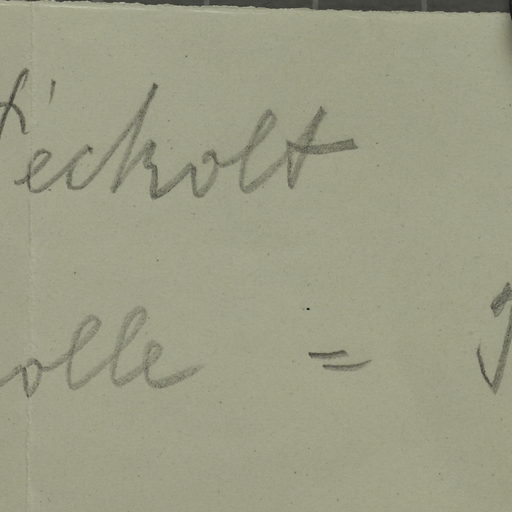 Peckolt
olle =